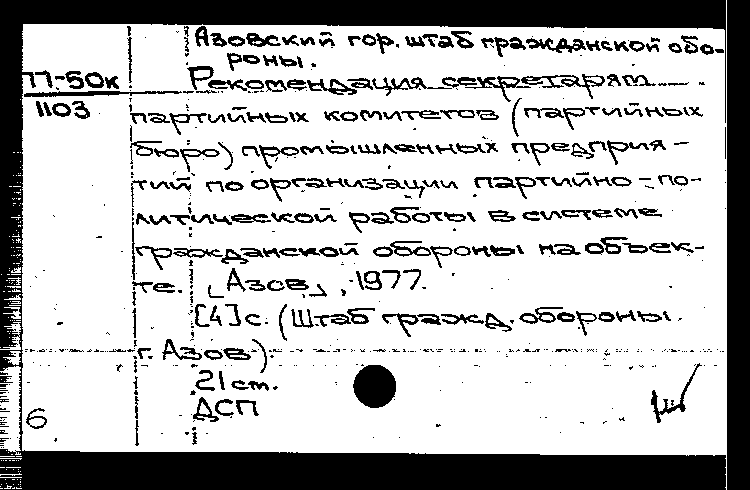 Азовский гор. штаб гражданской обо-
роны.
77-50к Рекомендация секретарям
1103 партийных комитетов (партийных
бюро) промышленных предприя-
тий по организации партийно-по-
литической работы в системе
гражданской обороны на объек-
те. [Азов], 1977.
[4] с. (Штаб гражд. обороны
г. Азов).
21 см.
6 ДСП